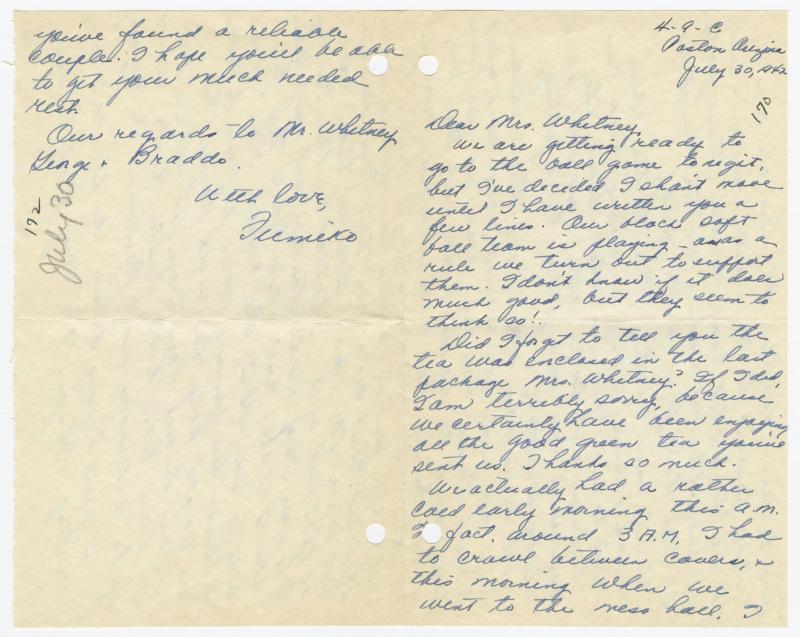 4-9-C
Poston Arizona
July 30, 1942
170
Dear Mrs. Whitney,
We are getting ready to
go to the ball game tonight,
but I've decided I shan't move
until I have written you a
few lines. Our block soft
ball team is playing - as a
rule we turn out to support
them. I don't know if it does
much good, but they seem to
think so!.
Did I forget to tell you the
tea was enclosed in the last
package Mrs. Whitney? If I did,
I am terribly sorry, because
we certainly have been enjoying
all the good green tea you've
sent us. Thanks so much.
We actually had a rather
cold early morning this a.m.
I fact, around 3 A.M. I had
to crawl between covers, &
this morning when we
went to the mess hall, I
you've found a reliable
couple. I hope you'll be able
to get your much needed
rest.
Our regards to Mr. Whitney
George & Braddo.
With love,
Fumiko
172
July 30